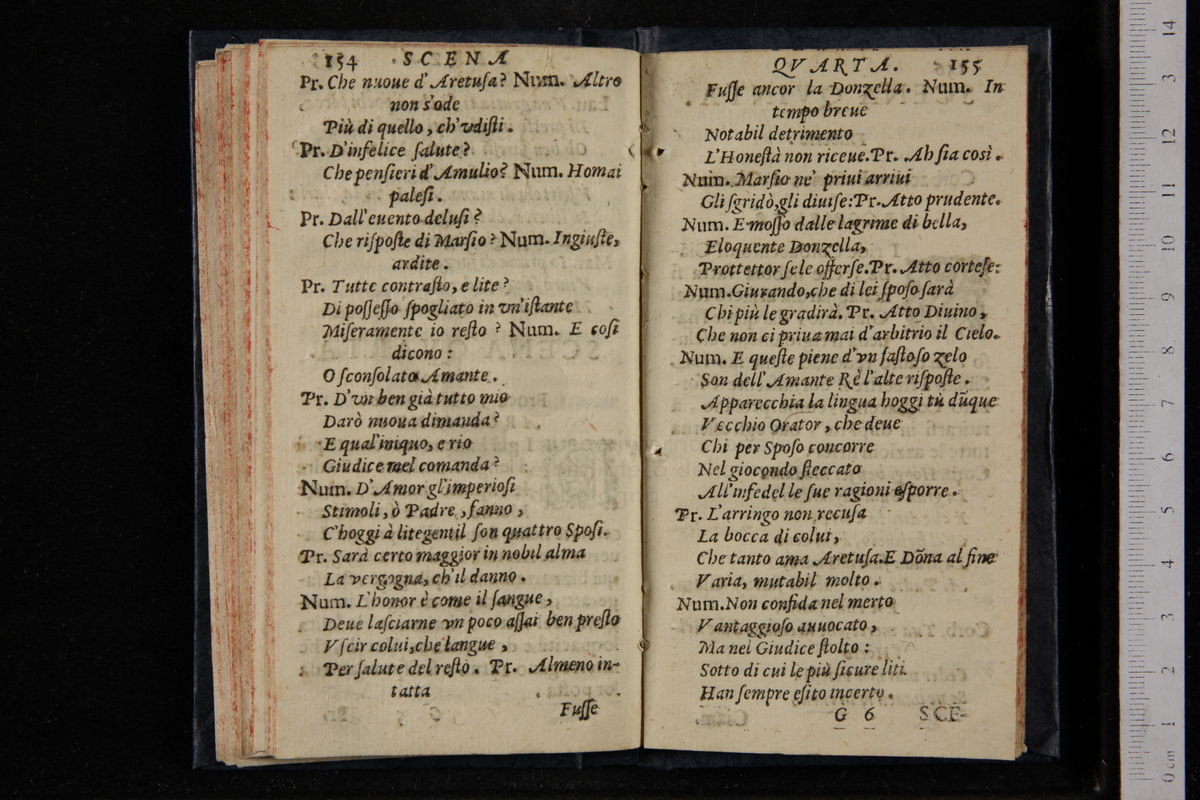 154 SCENA
Pr. Che nuoue d'Aretuſa? Num. Altro
non s'ode
Più di quello, ch'vdiſti.
Pr. D'infelice ſalute?
Che penſieri d'Amulio? Num. Homai
paleſi.
Pr. Dall'euento deluſi?
Che riſpoſte di Marſio? Num. Ingiuſte,
ardite.
Pr. Tutte contraſto, e lite?
Di poſſeſſo ſpogliato in vn'iſtante
Miſeramente io reſto? Num. E coſi
dicono:
O ſconſolato Amante.
Pr. D'vn ben già tutto mio
Darò nuoua dimanda?
E qual'iniquo, e rio
Giudice mel comanda?
Num. D'Amor gl'imperioſi
Stimoli, ò Padre, fanno,
C'hoggi à litegentil ſon quattro Spoſi.
Pr. Sarà certo maggior in nobil alma
La vergogna, ch'il danno.
Num. L'honor è come il ſangue,
Deue laſciarne vn poco aſſai ben preſto
Vſcir colui, che langue,
Per ſalute del reſto. Pr. Almeno in-
tatta
Fuſſe
QVARTA. 155
Fuſſe ancor la Donzella. Num. In
tempo breue
Notabil detrimento
L'Honeſtà non riceue. Pr. Ah ſia così.
Num. Marſio ne' priui arriui
Gli ſgridò, gli diuiſe: Pr. Atto prudente.
Num. E moſſo dalle lagrime di bella,
Eloquente Donzella,
Prottettor ſele offerſe. Pr. Atto corteſe:
Num. Giurando, che di lei ſpoſo ſarà
Chi più le gradirà. Pr. Atto Diuino,
Che non ci priua mai d'arbitrio il Cielo.
Num. E queſte piene d'vn faſtoſo zelo
Son dell'Amante Rè l'alte riſpoſte.
Apparecchia la lingua hoggi tù dũque
Vecchio Orator, che deue
Chi per Spoſo concorre
Nel giocondo ſteccato
All'infedel le ſue ragioni eſporre.
Pr. L'arringo non recuſa
La bocca di colui,
Che tanto ama Aretuſa. E Dõna al fine
Varia, mutabil molto.
Num. Non confida nel merto
Vantaggioſo auuocato,
Ma nel Giudice ſtolto:
Sotto di cui le più ſicure liti
Han ſempre eſito incerto.
G 6 SCE-
0 cm 1 2 3 4 5 6 7 8 9 10 11 12 13 14